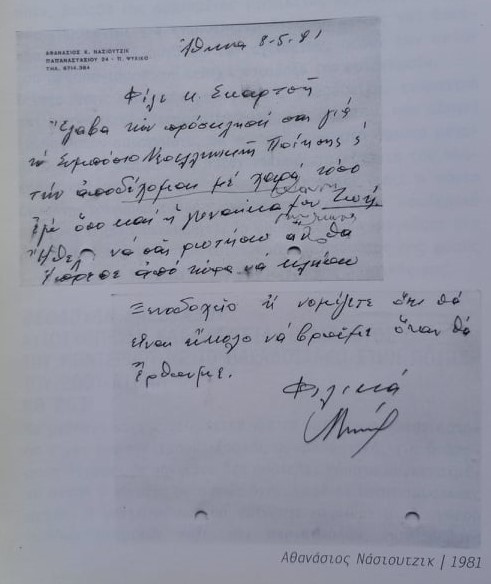 ΑΘΑΝΑΣΙΟΣ Κ. ΝΑΣΙΟΥΤΖΙΚ
ΠΑΠΑΝΑΣΤΑΣΙΟΥ 24 - Π. ΨΥΧΙΚΟ
ΤΗΛ. 6714.384
Ἀθήνα 8-5-81
Φίλε κ. Σκαρτσῆ
Ἔλαβα τήν πρόσκλησή σας γιά
τό Συμπόσιο Νεοελληνικῆς Ποίησης
τήν ἀποδέχομαι μέ χαρά τόσο
ἐγώ ὅσο καί ἡ γυναίκα μου Ζωή.
Ἤθελα νά σᾶς ρωτήσω ἄν θα
ἀπό τώρα νά κλείσω
ξενοδοχεῖο ἤ νομίζετε ὅτι θά
εἶναι εὔκολο νά βροῦμε ὅταν θά
ἔρθουμε.
Φιλικά
Αθανάσιος Νάσιουτζικ | 1981